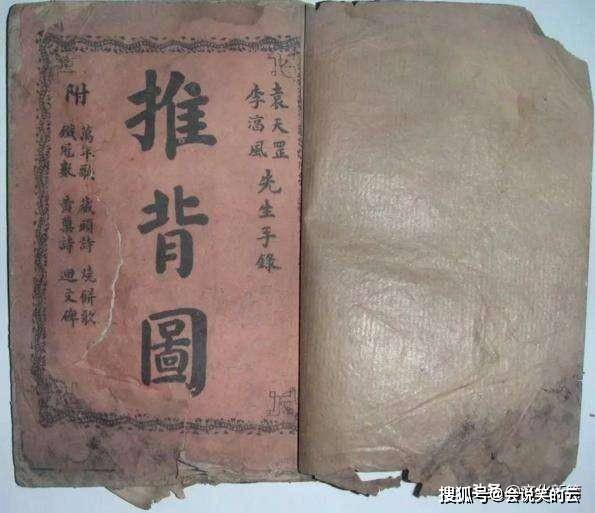 袁天罡
李淳風
先生手錄
推背圖
附
萬年歌 藏頭詩 燒餅歌
鐵冠數 黃蘗詩 迴文碑
搜狐号@会说笑的云